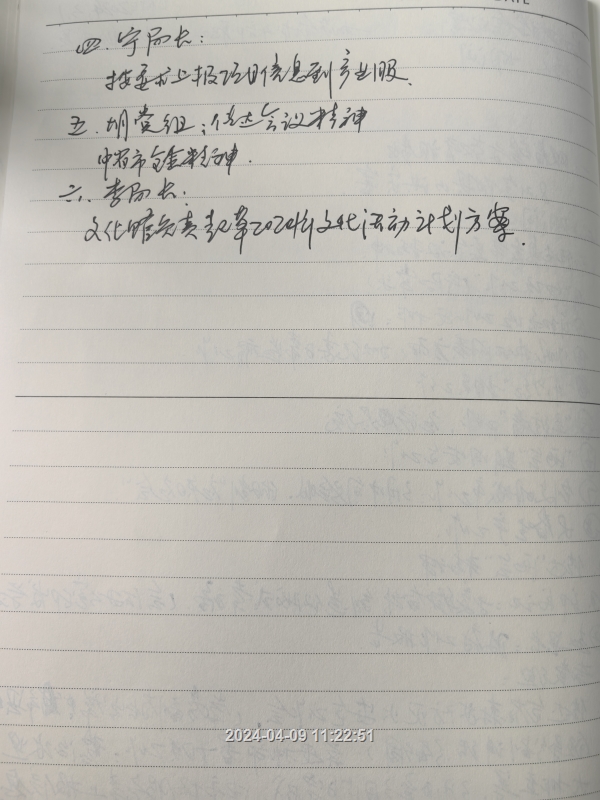 DATE
四.宁局长:
按要求上报项目信息到产业股.
五.胡党组:传达会议精神
中省市全会精神.
六.李局长:
文化馆负责起草2024年文化活动计划方案.
2024-04-09 11:22:51